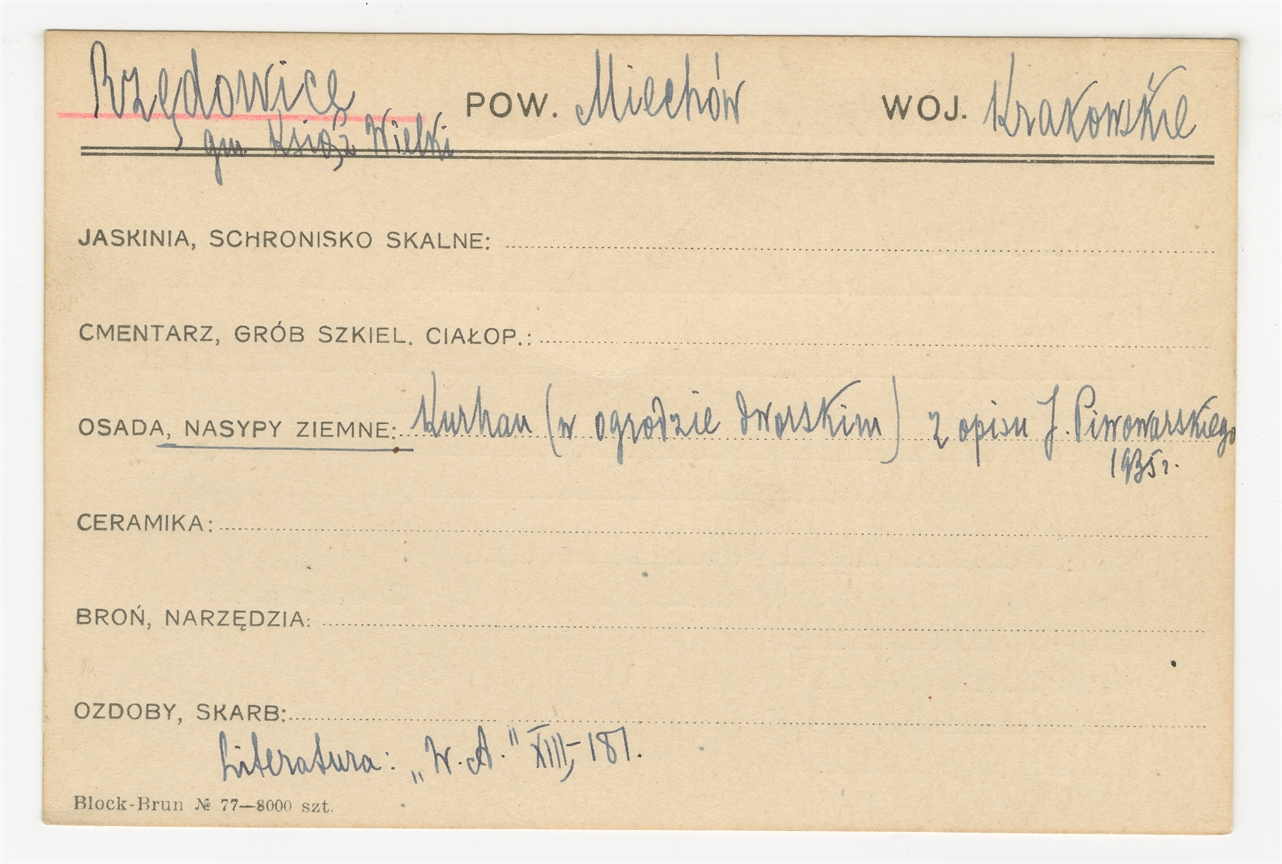 Rzędowice POW. Miechów WOJ. Krakowskie
gm. Książ Wielki
JASKINIA, SCHRONISKO SKALNE:
CMENTARZ, GRÓB SZKIEL. CIAŁOP.:
OSADA, NASYPY ZIEMNE: Kurhan (w ogrodzie dworskim) z opisu J. Piwowarskiego
1935r.
CERAMIKA:
BROŃ, NARZĘDZIA:
OZDOBY, SKARB:
Literatura: „W.A." XIII, 181.
Block-Brun № 77—8000 szt.